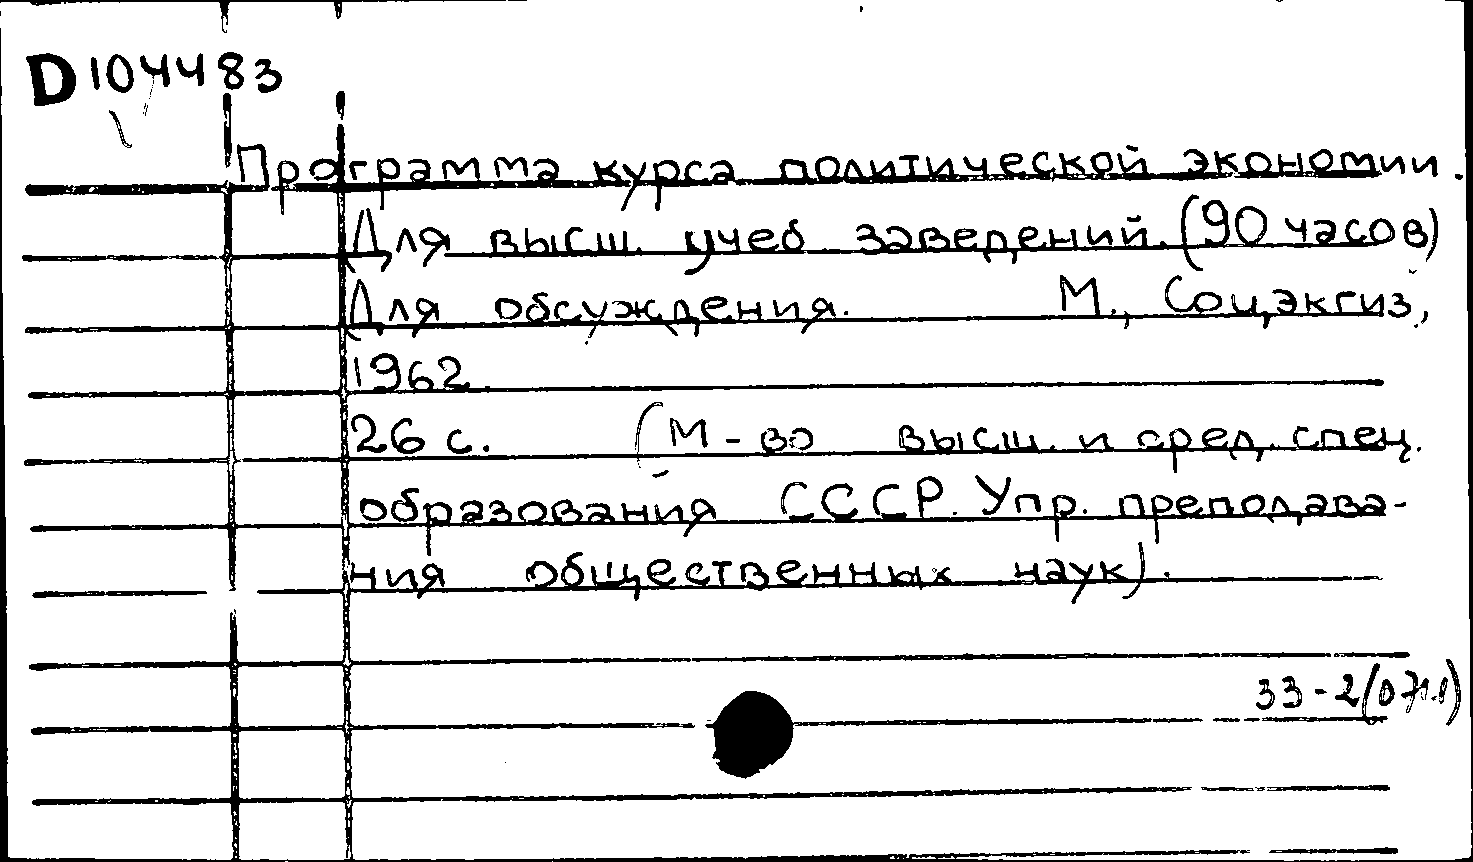 D104483
Программа курса политической экономии.
Для высш. учеб. заведений. (90 часов)
Для обсуждения. М., Соцэкгиз,
1962.
26 с. (М-во высш. и сред. спец.
образования СССР. Упр. преподава-
ния общественных наук).
33-2(071.1)